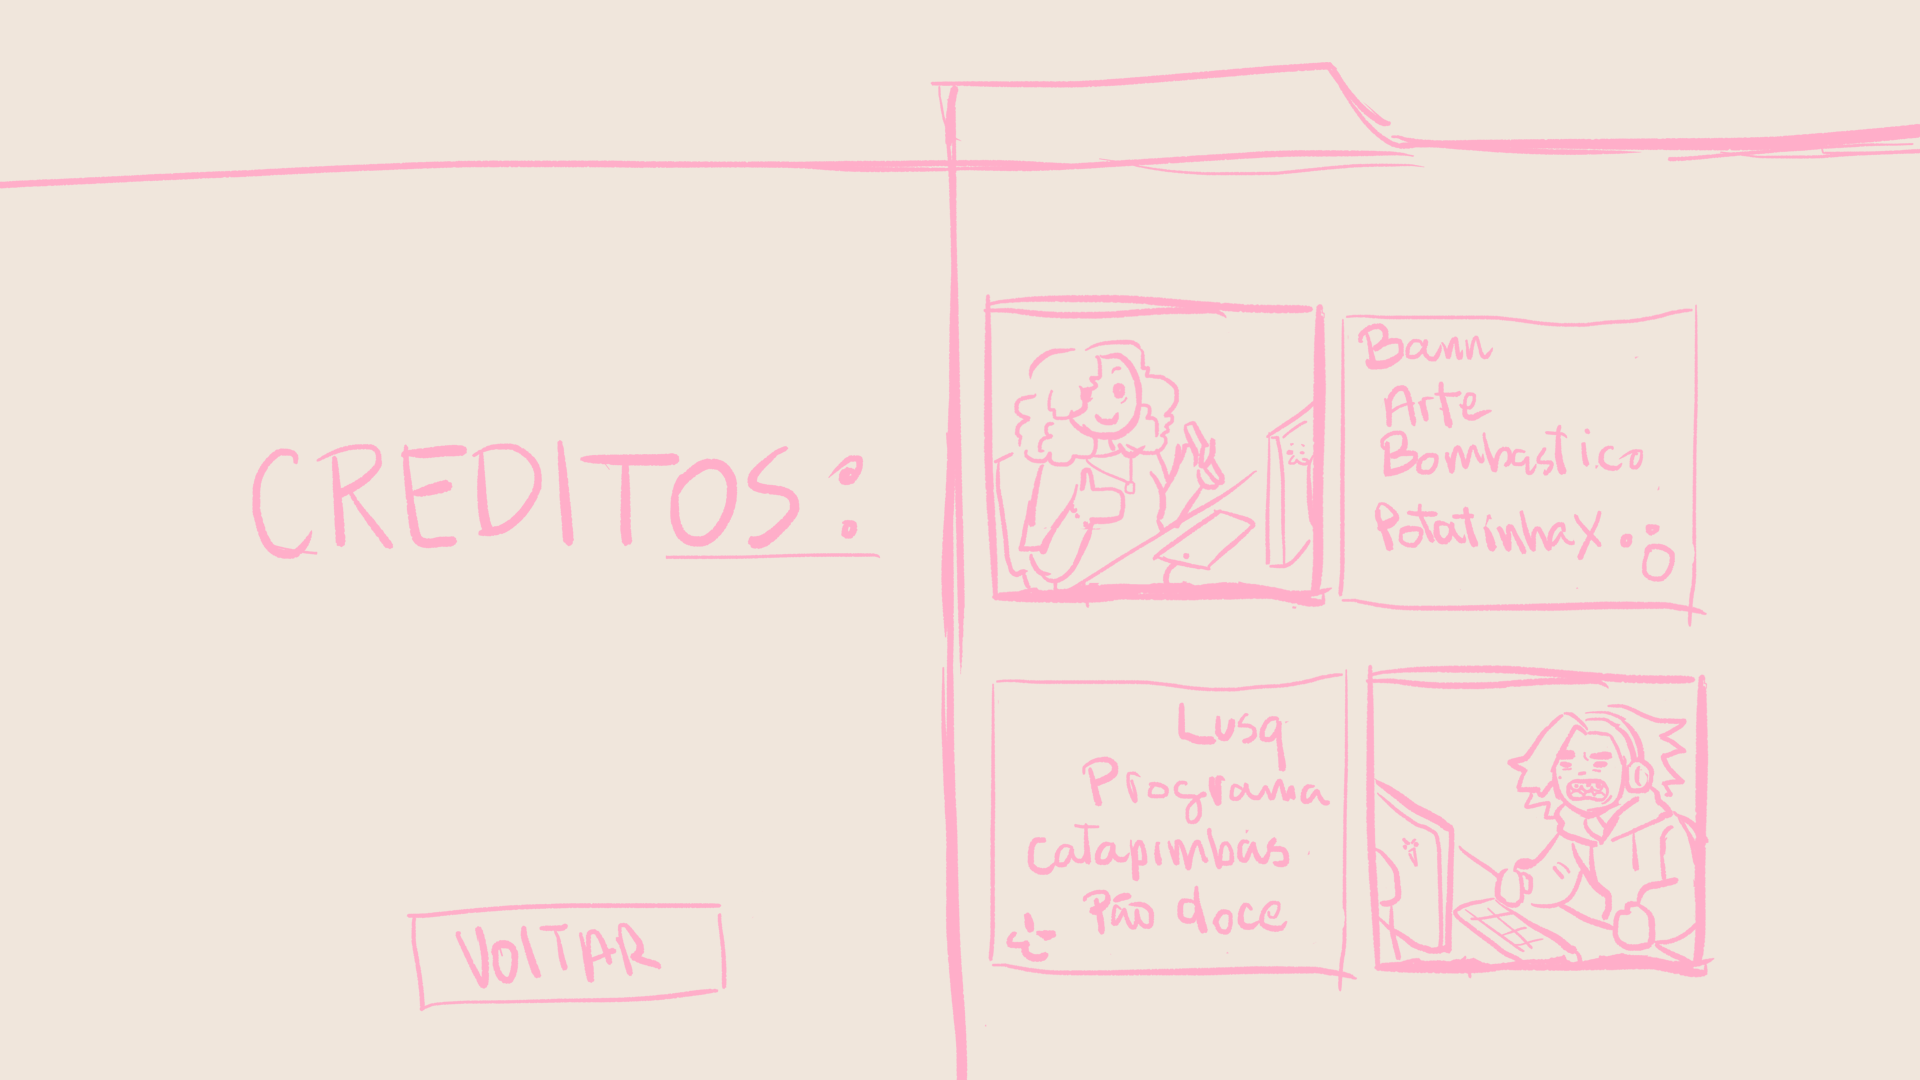 CREDITOS:
Bann
Arte
Bombastico
PotatinhaX
Lusq
Programa
catapimbas
Pão doce
VOLTAR